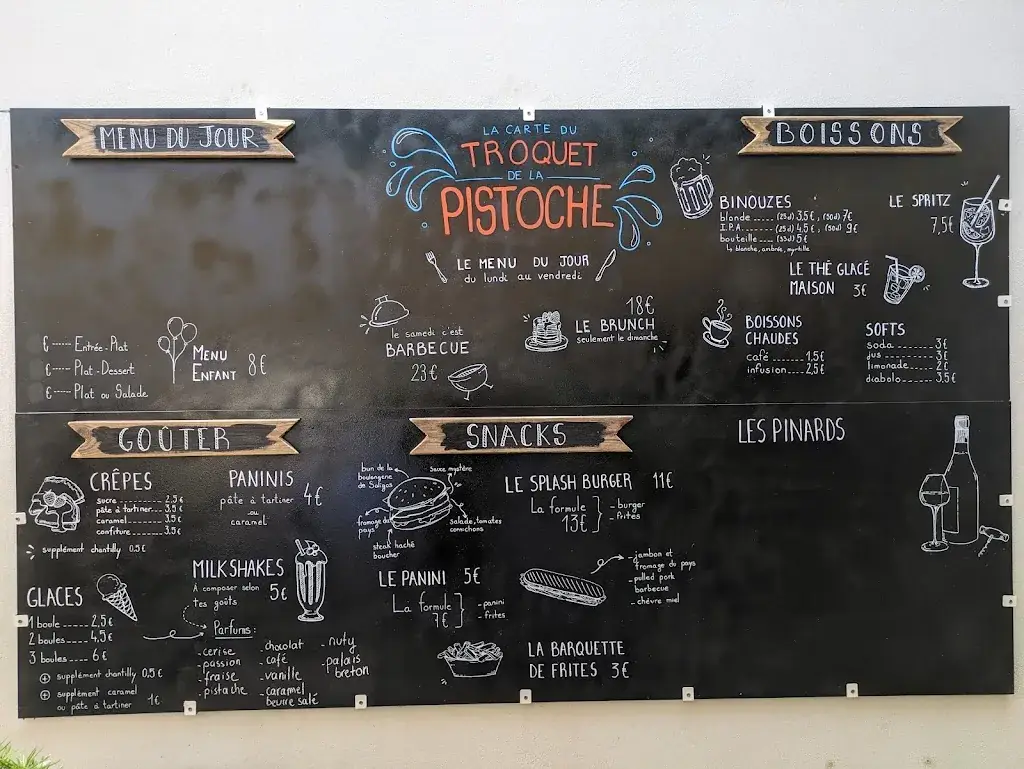 MENU DU JOUR
LA CARTE DU
TROQUET
DE LA
PISTOCHE
LE MENU DU JOUR
du lundi au vendredi
€ ----- Entrée-Plat
€ ---- Plat-Dessert
€ ---- Plat ou Salade
MENU
ENFANT 8€
le samedi c'est
BARBECUE
23€
18€
LE BRUNCH
seulement le dimanche
BOISSONS
BINOUZES
blonde ----- (25cl) 3,5€, (50cl) 7€
I.P.A. ------- (25cl) 4,5€, (50cl) 9€
bouteille ---- (33cl) 5€
↳ blanche, ambrée, myrtille
LE SPRITZ
7,5€
LE THÉ GLACÉ
MAISON 3€
BOISSONS
CHAUDES
café ------- 1,5€
infusion ---- 2,5€
SOFTS
soda ---------- 3€
jus ----------- 3€
limonade ------ 2€
diabolo ------- 3,5€
GOÛTER
CRÊPES
sucre ------------- 2,5€
pâte à tartiner ---- 3,5€
caramel ----------- 3,5€
confiture ---------- 3,5€
supplément chantilly 0.5€
PANINIS
pâte à tartiner
ou
caramel
4€
GLACES
1 boule ----- 2,5€
2 boules ---- 4,5€
3 boules ---- 6€
⊕ supplément chantilly 0.5€
⊕ supplément caramel
ou pâte à tartiner 1€
MILKSHAKES
À composer selon
tes goûts
5€
Parfums:
- cerise
- passion
- fraise
- pistache
- chocolat
- café
- vanille
- caramel
beurre salé
- nuty
- palais
breton
SNACKS
bun de la
boulangerie
de Saligos
sauce mystère
fromage du
pays
salade, tomates
cornichons
steak haché
boucher
LE SPLASH BURGER 11€
La formule
13€
- burger
- frites
LE PANINI 5€
La formule
7€
- panini
- frites
- jambon et
fromage du pays
- pulled pork
barbecue
- chèvre miel
LA BARQUETTE
DE FRITES 3€
LES PINARDS